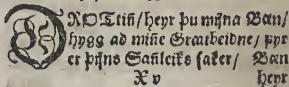 DROTtiñ/heyr þu mijna Bæn/
hygg ad miñe Graatbeidne/ fyr
er þijns Sañleiks saker/ Bæn
X v heyr